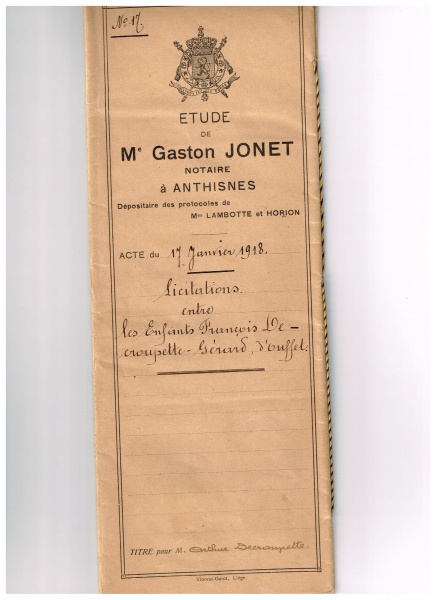 N° 17.
ETUDE
DE
Me Gaston JONET
NOTAIRE
à ANTHISNES
Dépositaire des protocoles de
Mes LAMBOTTE et HORION
ACTE du 17 Janvier 1918.
Licitations
entre
les Enfants François De-
croupette-Gérard, d'Ouffet.
TITRE pour M. Arthur Decroupette.
Liège.